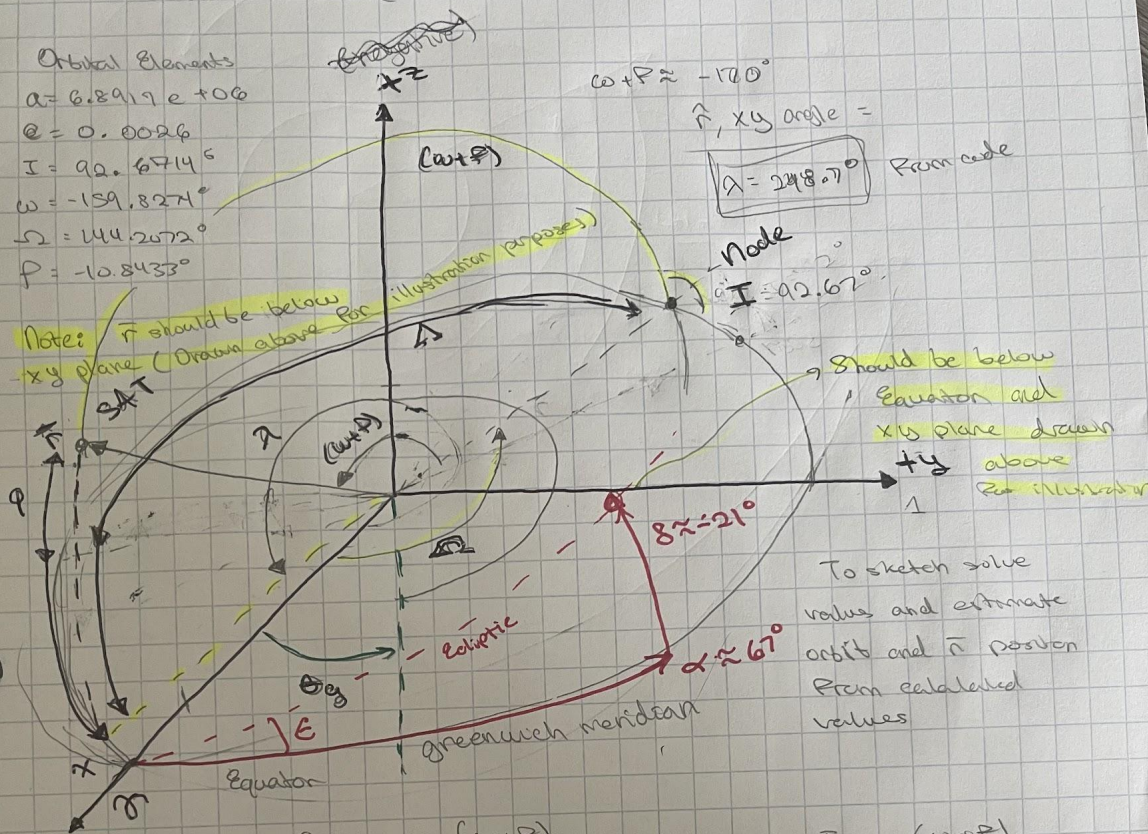 Orbital Elements
a = 6.8919 e +06
e = 0.0026
I = 92.6714°
ω = -159.8271°
Ω = 144.2072°
f = -10.8433°
Note: r̄ should be below
xy plane (Drawn above for illustration purposes)
+z
(ω+f)
ω+f ≈ -170°
r̂, xy angle =
λ = 248.7°
From code
Node
I = 92.67°
SAT
r̄
φ
λ
(ω+f)
Ω
Should be below
Equator and
xy plane drawn
above
for illustration
+y
1
δ ≈ -21°
α ≈ 67°
Ecliptic
θg
ε
Equator
greenwich meridian
x
♈
To sketch solve
value and estimate
orbit and r̄ position
from calculated
values